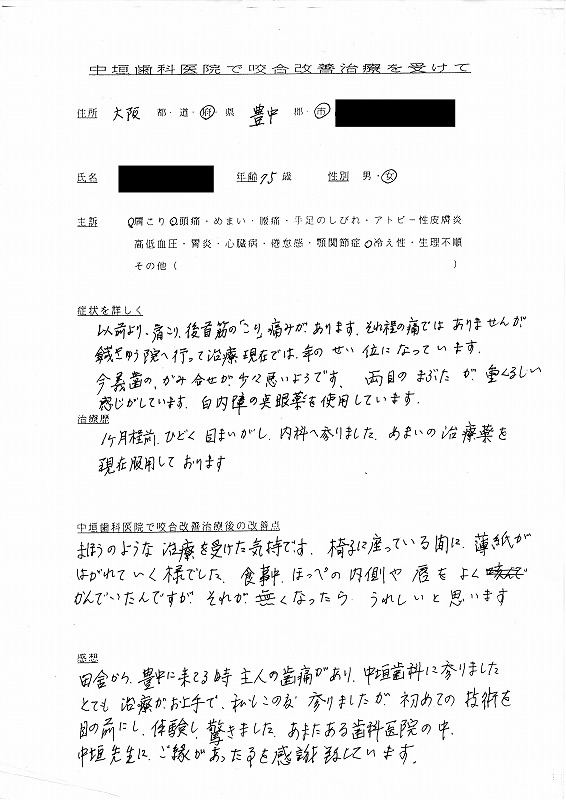 中垣歯科医院で咬合改善治療を受けて
住所 大阪 都・道・府・県 豊中 郡・市
氏名 年齢 75歳 性別 男・女
主訴 肩こり・頭痛・めまい・腰痛・手足のしびれ・アトピー性皮膚炎
高低血圧・胃炎・心臓病・倦怠感・顎関節症・冷え性・生理不順
その他( )
症状を詳しく
以前より、肩こり、後首筋の「こり」痛みがあります。それ程の痛では ありませんが
鍼きゅう院へ行って治療現在では、年のせい位になっています。
今義歯の、かみ合せが少々悪いようです、両目のまぶたが重くるしい
感じがしています。白内障の点眼薬を使用しています。
治療歴
1ヶ月程前、ひどく目まいがし、内科へ参りました、めまいの治療薬を
現在服用しております
中垣歯科医院で咬合改善治療後の改善点
まほうのような治療を受けた気持です。椅子に座っている間に、薄紙が
はがれていく様でした、食事中、ほっぺの内側や唇をよく
かんでいたんですが、それが無くなったら、うれしいと思います
感想
田舎から、豊中に来てる時 主人の歯痛があり、中垣歯科に参りました
とても治療がお上手で、私もこの度 参りましたが 初めての技術を
目の前にし、体験し、驚きました、あまたある歯科医院の中、
中垣先生に、ご縁があった事を感謝致しています。